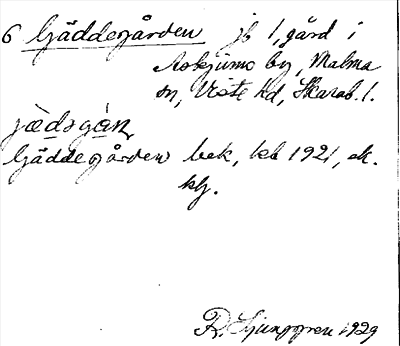 6 Gäddegården jb 1, gård i
Askjums by, Malma
sn, Viste hd, Skarab. l.
jæ̀dsgàn,
Gäddegården bek, kb 1921, ek.
klg.
R. Ljunggren 1929